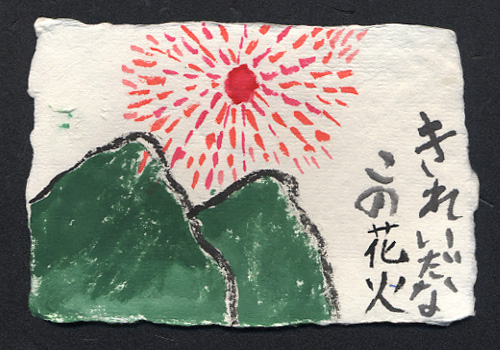 きれーいだな
この花火